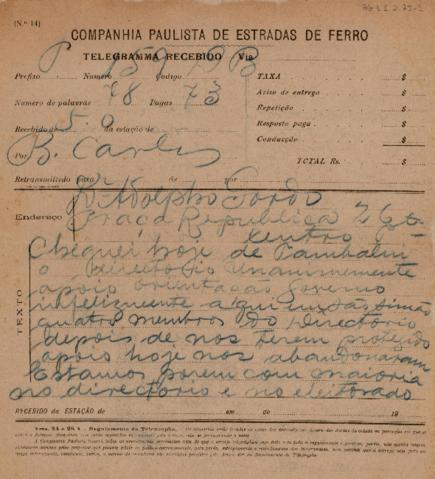 (N.º 14)
COMPANHIA PAULISTA DE ESTRADAS DE FERRO
TELEGRAMMA RECEBIDO Via
Prefixo P Numero 159 Codigo B
Numero de palavras 78 Pagas 73
Recebido de S. da estação de
Por B. Carlos
Retransmittido para ás por
TAXA $
Aviso de entrega $
Repetição $
Resposta paga $
Conducção $
TOTAL Rs. $
Endereço Dr Adolpho Gordo
Praça Republica 26
TEXTO
Cheguei hoje de Tambahu
o directorio unanimemente
apoio orientação governo
infelizmente aqui em São Simão
quatro membros do directorio
depois de nos terem protegido
apoio hoje nos abandonaram
Estamos porem com maioria
no directorio e no eleitorado
RECEBIDO DE ESTAÇÃO DE em de 19